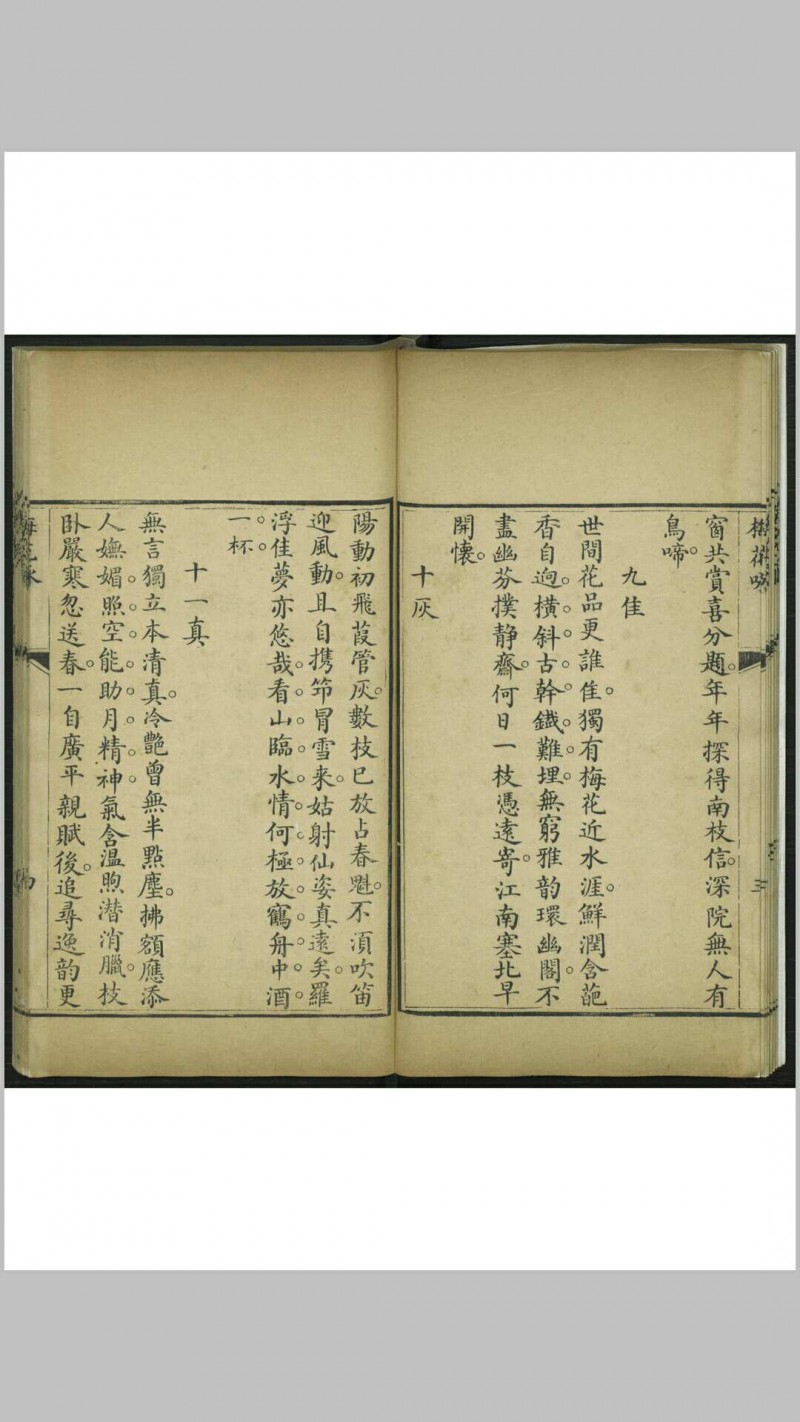 梅花吟
三
窗共賞喜分題。年年探得南枝信。深院無人有
鳥啼。
九佳
世間花品更誰佳。獨有梅花近水涯。鮮潤含葩
香自逈。橫斜古幹鐵難埋。無窮雅韵環幽閣。不
盡幽芬撲静齋。何日一枝憑遠寄。江南塞北早
開懷。
十灰
陽動初飛葭管灰。數枝已放占春魁。不湏吹笛
迎風動。且自携笻冒雪来。姑射仙姿真遠矣。羅
浮佳夢亦悠哉。看山臨水情何極。放鶴舟中酒
一杯。
十一真
無言獨立本清真。冷艷曾無半點塵。拂額應添
人嫵媚。照空能助月精神。氣含溫煦潜消臘。枝
卧嚴寒忽送春。一自廣平親賦後。追尋逸韵更